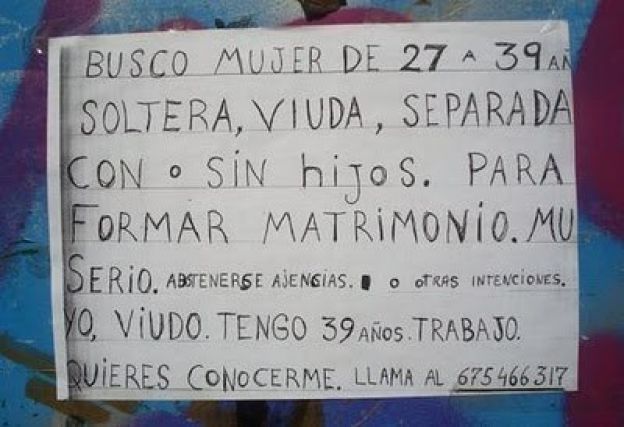 BUSCO MUJER DE 27 A 39 AÑ
SOLTERA, VIUDA, SEPARADA
CON O SIN hijos. PARA
FORMAR MATRIMONIO. MU
SERIO. ABSTENERSE AJENCIAS. O OTRAS INTENCIONES.
YO, VIUDO. TENGO 39 AÑOS. TRABAJO.
QUIERES CONOCERME. LLAMA AL 675466317